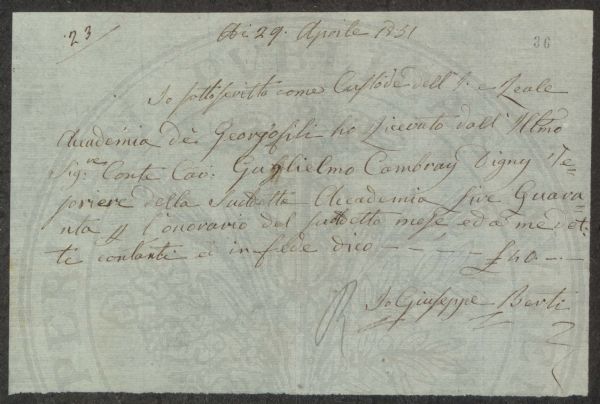 23
Adi 29. Aprile 1851
36
Io sottoscritto come Custode dell' I. e Reale
Accademia dei Georgofili ho ricevuto dall' Illmo
Sig:re Conte Cav: Guglielmo Cambray Digny Te=
soriere della Suddetta Accademia Lire Quara=
nta p l'onorario del suddetto mese ed a me det=
ti contanti ed in fede dico — — — £ 40 — —
Io Giuseppe Berti